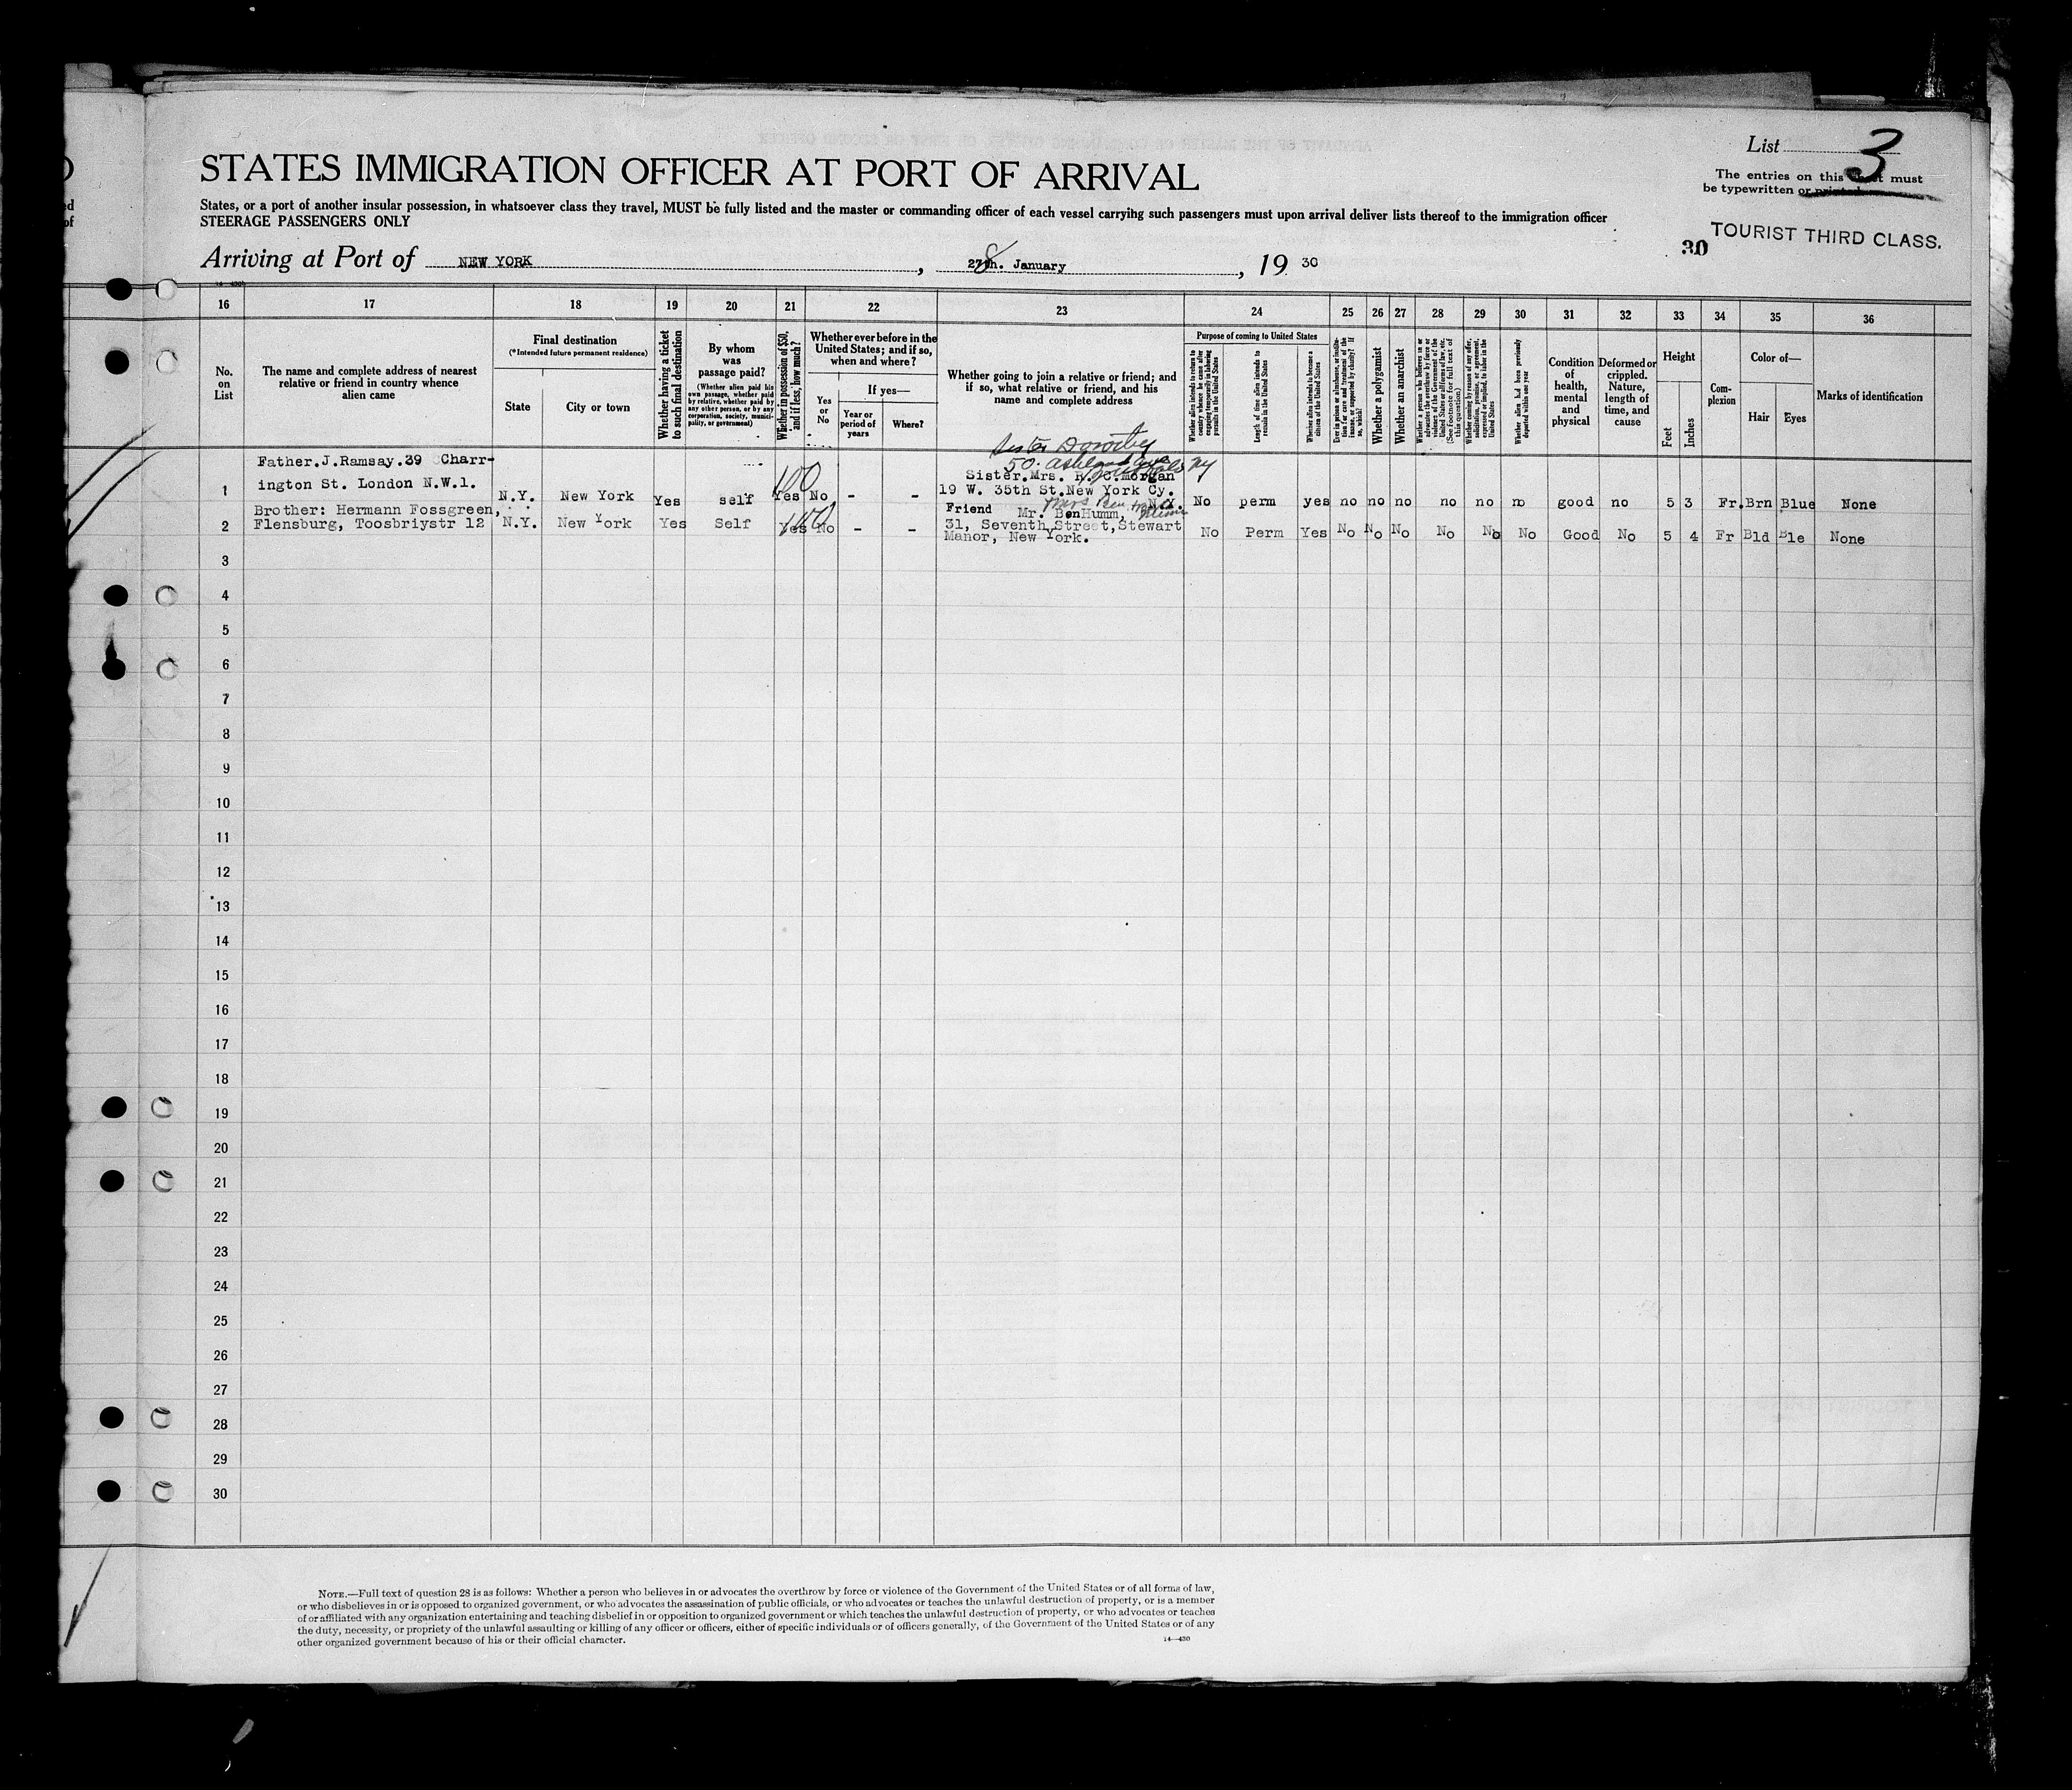 List 3
STATES IMMIGRATION OFFICER AT PORT OF ARRIVAL
The entries on this must
be typewritten or printed
States, or a port of another insular possession, in whatsoever class they travel, MUST be fully listed and the master or commanding officer of each vessel carrying such passengers must upon arrival deliver lists thereof to the immigration officer
STEERAGE PASSENGERS ONLY
30 TOURIST THIRD CLASS.
Arriving at Port of NEW YORK , 27th. 8 January , 19 30
16 17 18 19 20 21 22 23 24 25 26 27 28 29 30 31 32 33 34 35 36
No.
on
List
The name and complete address of nearest
relative or friend in country whence
alien came
Final destination
(*Intended future permanent residence)
State
City or town
Whether having a ticket
to such final destination
By whom
was
passage paid?
(Whether alien paid his
own passage, whether paid
by relative, whether paid by
any other person, or by any
corporation, society, munici-
pality, or government)
Whether in possession of $50,
and if less, how much?
Whether ever before in the
United States; and if so,
when and where?
Yes
or
No
If yes—
Year or
period of
years
Where?
Whether going to join a relative or friend; and
if so, what relative or friend, and his
name and complete address
Purpose of coming to United States
Whether alien intends to return to
country whence he came after
engaging temporarily in laboring
pursuits in the United States
Length of time alien intends to
remain in the United States
Whether alien intends to become a
citizen of the United States
Ever in prison or almshouse, or institu-
tion for care and treatment of the
insane, or supported by charity? If
so, which?
Whether a polygamist
Whether an anarchist
Whether a person who believes in or
advocates the overthrow by force or
violence of the Government of the
United States or all forms of law, etc.
(See footnote for full text of
this question)
Whether coming by reason of any offer,
solicitation, promise, or agreement,
expressed or implied, to labor in the
United States
Whether alien had been previously
deported within one year
Condition
of
health,
mental
and
physical
Deformed or
crippled.
Nature,
length of
time, and
cause
Height
Feet
Inches
Com-
plexion
Color of—
Hair
Eyes
Marks of identification
Sister Dorothy
50. Ashland Ave
NY
Father.J.Ramsay.39 Charr-
ington St. London N.W.1.
Sister.Mrs. R. C. morgan
19 W. 35th St.New York Cy.
1 N.Y. New York Yes self 100 Yes No - - N.Y. No perm yes no no no no no no good no 5 3 Fr. Brn Blue None
Brother: Hermann Fossgreen,
Flensburg, Toosbriystr 12
Friend Mr. BenHumm,
Mrs Ben
31, Seventh Street,Stewart
Manor, New York.
2 N.Y. New York Yes Self 100 Yes No - - No Perm Yes No No No No No No Good No 5 4 Fr Bld Ble None
3
4
5
6
7
8
9
10
11
12
13
14
15
16
17
18
19
20
21
22
23
24
25
26
27
28
29
30
NOTE.—Full text of question 28 is as follows: Whether a person who believes in or advocates the overthrow by force or violence of the Government of the United States or of all forms of law,
or who disbelieves in or is opposed to organized government, or who advocates the assassination of public officials, or who advocates or teaches the unlawful destruction of property, or is a member
of or affiliated with any organization entertaining and teaching disbelief in or opposition to organized government or which teaches the unlawful destruction of property, or who advocates or teaches
the duty, necessity, or propriety of the unlawful assaulting or killing of any officer or officers, either of specific individuals or of officers generally, of the Government of the United States or of any
other organized government because of his or their official character.
14—430